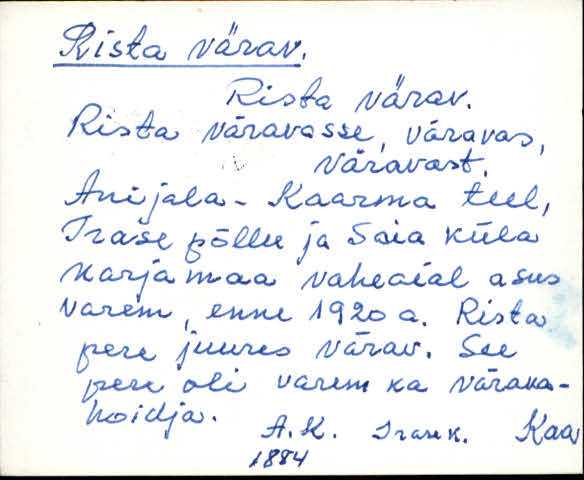 Rista värav.
Rista värav.
Rista väravasse, väravas,
väravast.
Anijala - Kaarma teel,
Irase põllu ja Saia küla
karjamaa vaheaial asus
varem, enne 1920 a. Rista
pere juures värav. See
pere oli varem ka värava-
hoidja.
A.K. Irase k. Kaa
1884